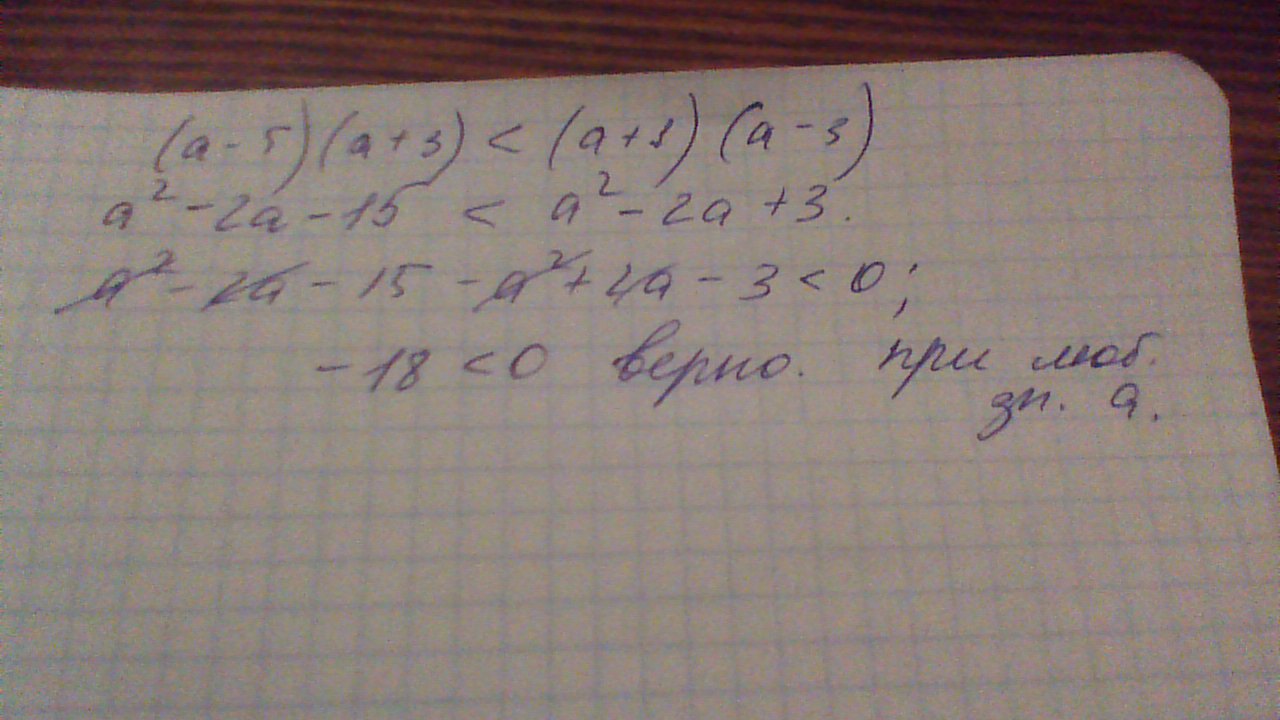 (a - 5)(a + 3) < (a + 1)(a - 3)
a² - 2a - 15 < a² - 2a + 3.
a² - 2a - 15 - a² + 2a - 3 < 0;
- 18 < 0 верно. при люб.
зн. a.